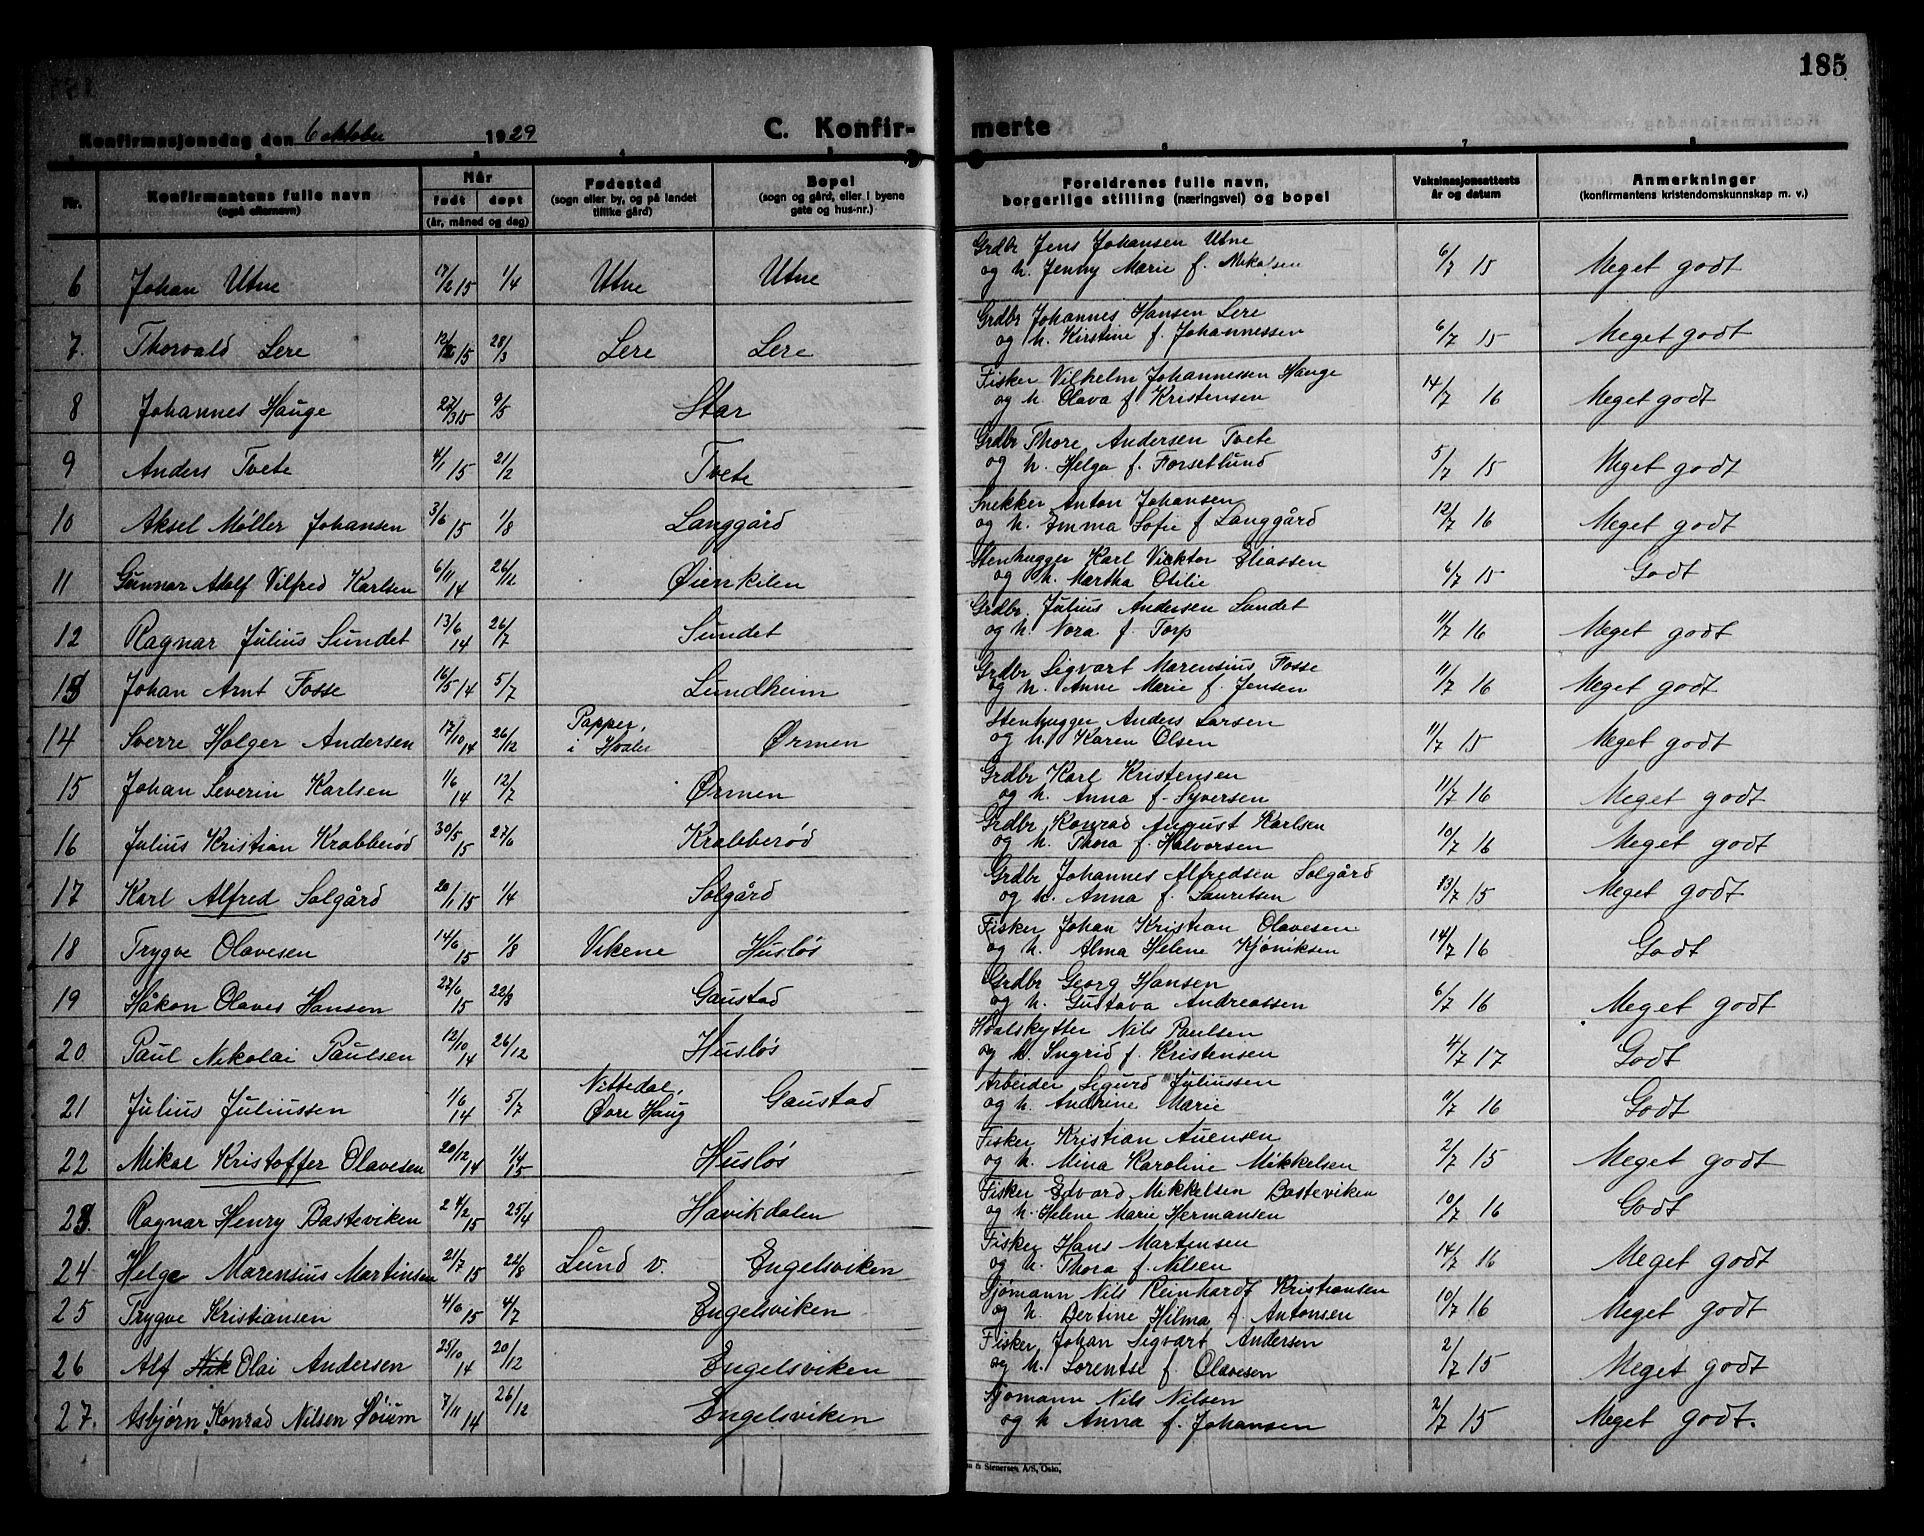 185
Konfirmasjonsdag den 6 oktober 1929
C. Konfir-merte
Nr.
Konfirmantens fulle navn
(også efternavn)
Når
født
døpt
(år, måned og dag)
Fødested
(sogn eller by, og på landet
tillike gård)
Bopel
(sogn og gård, eller i byene
gate og hus-nr.)
Foreldrenes fulle navn,
borgerlige stilling (næringsvei) og bopel
Vaksinasjonsattests
år og datum
Anmerkninger
(konfirmantens kristendomskunnskap m. v.)
Grdbr Jens Johansen Utne
6 Johan Utne 17/2 15 1/4 Utne Utne og h. Jenny Marie f. Mikalsen 6/7 15 Meget godt
Grdbr Johannes Hansen Lere
7. Thorvald Lere 15 28/3 Lere Lere og h. Kirstine f. Johannessen 6/7 15 Meget godt
Fisker Vilhelm Johannessen Hauge
8 Johannes Hauge 27/3 15 9/5 Star og h. Olava f Kristensen 14/7 16 Meget godt
Grdbr Thore Andersen Tvete
9 Anders Tvete 4/1 15 21/2 Tvete og h. Helga f. Forsetlund 5/7 15 Meget godt
Snekker Anton Johansen
10 Aksel Møller Johansen 3/6 15 1/8 Langgård og h. Emma Sofie f Langgård 12/7 16 Meget godt
Stenhugger Karl Vicktor Eliassen
11 Gunnar Adolf Vilfred Karlsen 6/11 14 26/12 Øienkilen og h. Martha Otilie 6/7 15 Godt
Grdbr. Julius Andersen Sundet
12 Ragnar Julius Sundet 13/6 14 26/7 Sundet og h. Nora f. Torp 11/7 16 Meget godt
Grdbr Sigvart Marensius Fosse
13 Johan Arnt Fosse 16/5 14 5/7 Lundheim og h. Anne Marie f. Jensen 11/7 16 Meget godt
Stenhugger Anders Larsen
14 Sverre Holger Andersen 17/10 14 26/12 Papper, i Hvaler Ørmen og h. Karen Olsen 11/7 15 Meget godt
Grdbr Karl Kristensen
15 Johan Severin Karlsen 1/6 14 12/7 Ørmen og h. Anna f. Syversen 11/7 16 Meget godt
Grdbr Konrad August Karlsen
16 Julius Kristian Krabberød 30/5 15 27/6 Krabberød og h. Thora f. Halvorsen 10/7 16 Meget godt
Grdbr Johannes Alfredsen Solgård
17 Karl Alfred Solgård 20/1 15 1/4 Solgård og h. Anna f. Lauritsen 15 Meget godt
Fisker Johan Kristian Olavesen
18 Trygve Olavesen 14/6 15 1/8 Vikene Husløs og h. Alma Helene Kjøniksen 14/7 16 Godt
Grdbr Georg Hansen
19 Håkon Olaves Hansen 27/6 15 Gaustad og h. Gustava Andreassen 6/7 16 Meget godt
Hvalskytter Nils Paulsen
20 Paul Nikolai Paulsen 12/10 14 26/12 Husløs og h. Ingrid f. Kristensen 4/7 17 Godt
Arbeider Sigurd Juliussen
21 Julius Juliussen 1/6 14 5/7 Nittedal, Øvre Haug Gaustad og h. Andrine Marie 11/7 16 Godt
Fisker Kristian Auensen
22 Mikal Kristoffer Olavesen 20/12 14 1/4 15 Husløs og h. Mina Karoline Mikkelsen 2/7 15 Meget godt
Fisker Edvard Mikkelsen Basteviken
23. Ragnar Henry Basteviken 24/2 15 25/4 Havikdalen og h. Helene Marie Hermansen 10/7 16 Godt
Fisker Hans Martensen
24 Helge Marensius Martinsen 21/7 15 22/8 Lund v. Engelsviken og h. Thora f. Nilsen 14/7 16 Meget godt
Sjømann Nils Reinhardt Kristiansen
25 Trygve Kristiansen 4/6 15 4/7 Engelsviken og h. Bertine Hilma f. Antonsen 10/7 16 Meget godt
Fisker Johan Sigvart Andersen
26 Alf Nik Olai Andersen 25/10 14 20/12 Engelsviken og h. Lorentse f. Olavesen 2/7 15 Meget godt
Sjømann Nils Nilsen
27. Asbjørn Konrad Nilsen Høium 7/11 14 26/12 Engelsviken og h Anna f. Johansen 2/7 15 Meget godt.
& Stenersen A/S, Oslo,